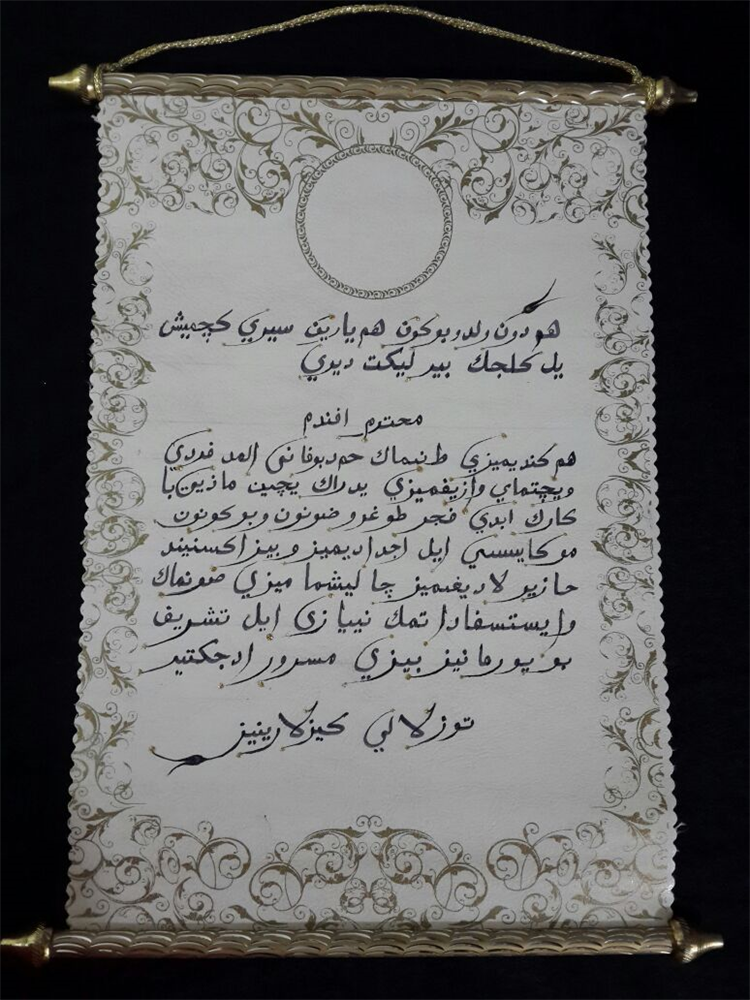 هم دون ولدو بوكون هم يارين سيري كچميش
يل كلجك بير ليكت ديري
محترم افندم
هم كنديميزي طنيماك حم دبوفاني العد فردي
ويچتماي وازيفميزي يدراك يچين ماذين با
كارك ابدي فجر طوغرو ضونون وبوكونون
موكايسسي ايل اجداديميز و بيز اكسنيند
حازير لاديغيميز چاليشما ميزي صونماك
وايستسفادا تمك نييازي ايل تشريف
بويورمانيز بيزي مسرور ادجكتير
توزلالي كيزلارينيز